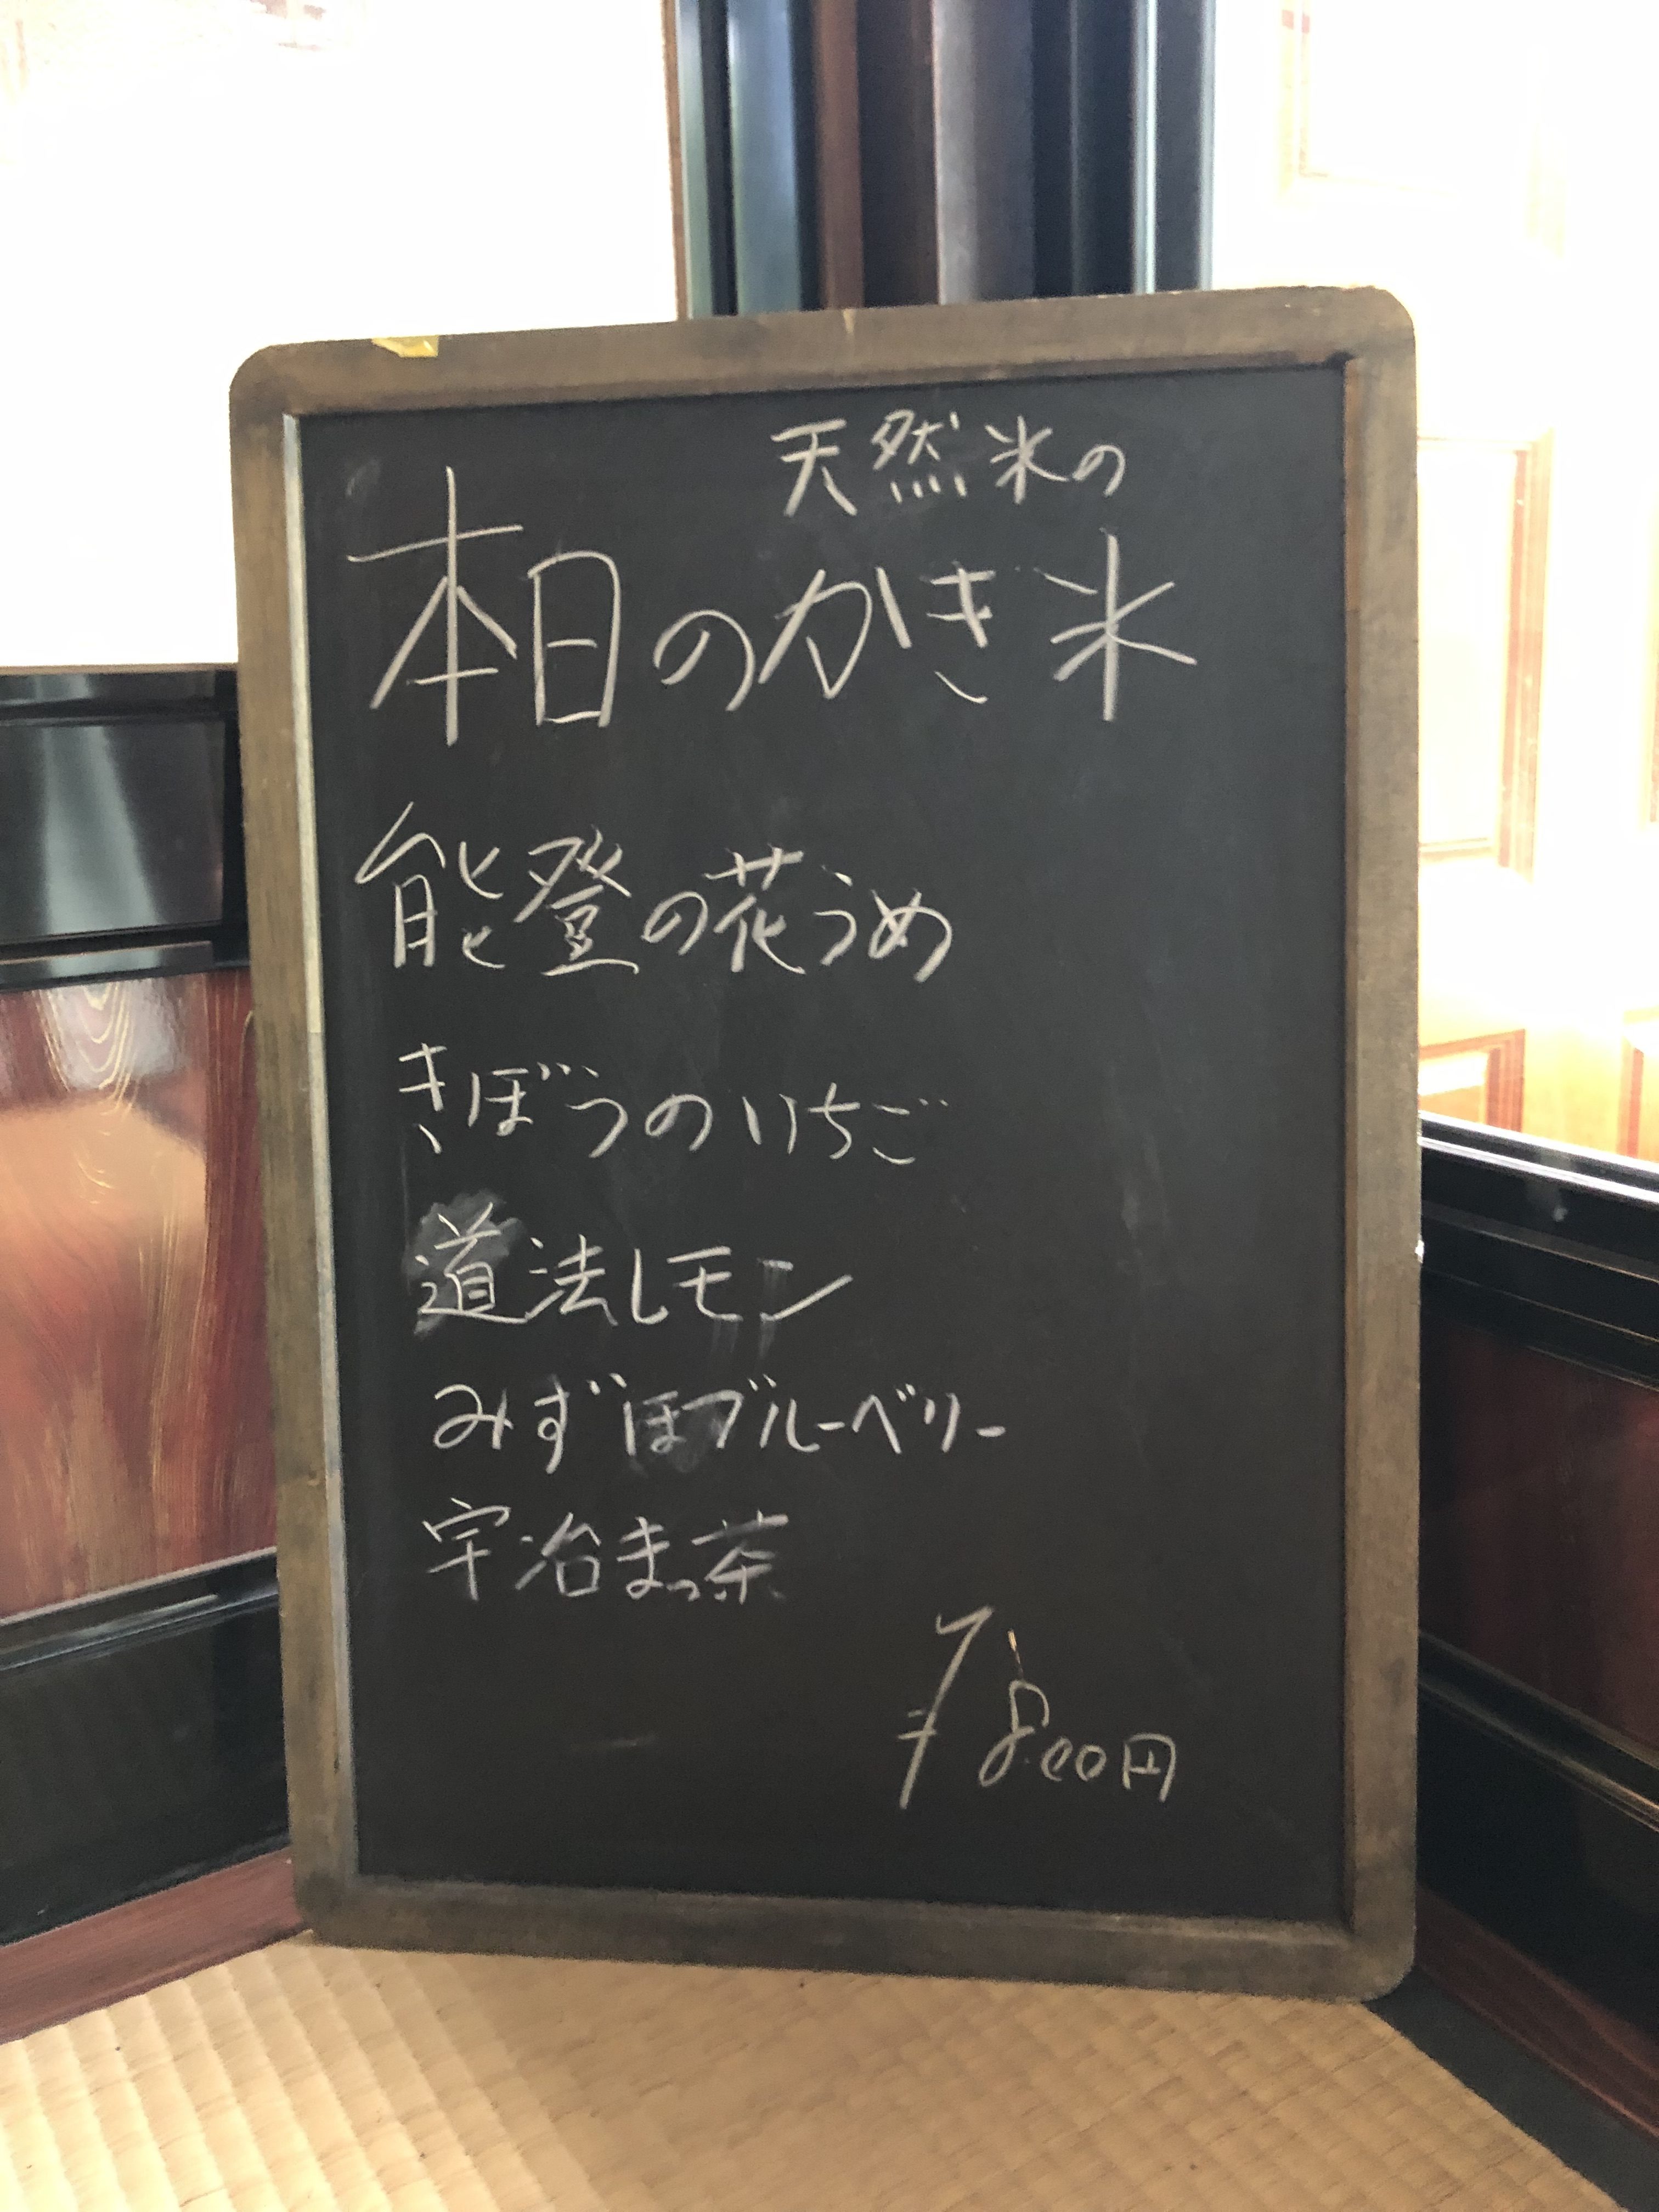 天然氷の
本日のかき氷
能登の花うめ
きぼうのいちご
道法レモン
みずほブルーベリー
宇治まっ茶
¥800円